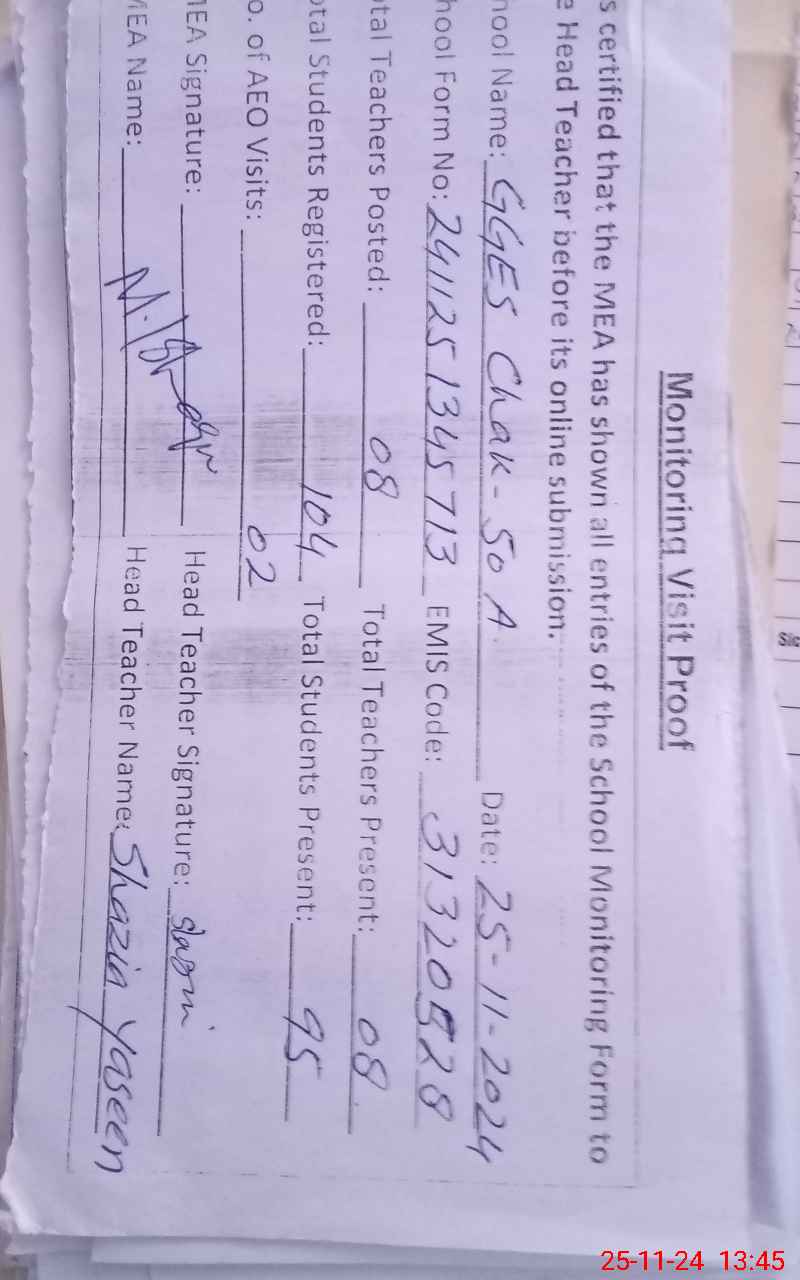 Monitoring Visit Proof
s certified that the MEA has shown all entries of the School Monitoring Form to
e Head Teacher before its online submission.
hool Name: GGES Chak-50 A Date: 25-11-2024
hool Form No: 241125134571​3 EMIS Code: 31320528
otal Teachers Posted: 08 Total Teachers Present: 08
otal Students Registered: 104 Total Students Present: 95
o. of AEO Visits: 02
MEA Signature: Head Teacher Signature:
MEA Name: Head Teacher Name: Shazia Yaseen
25-11-24 13:45